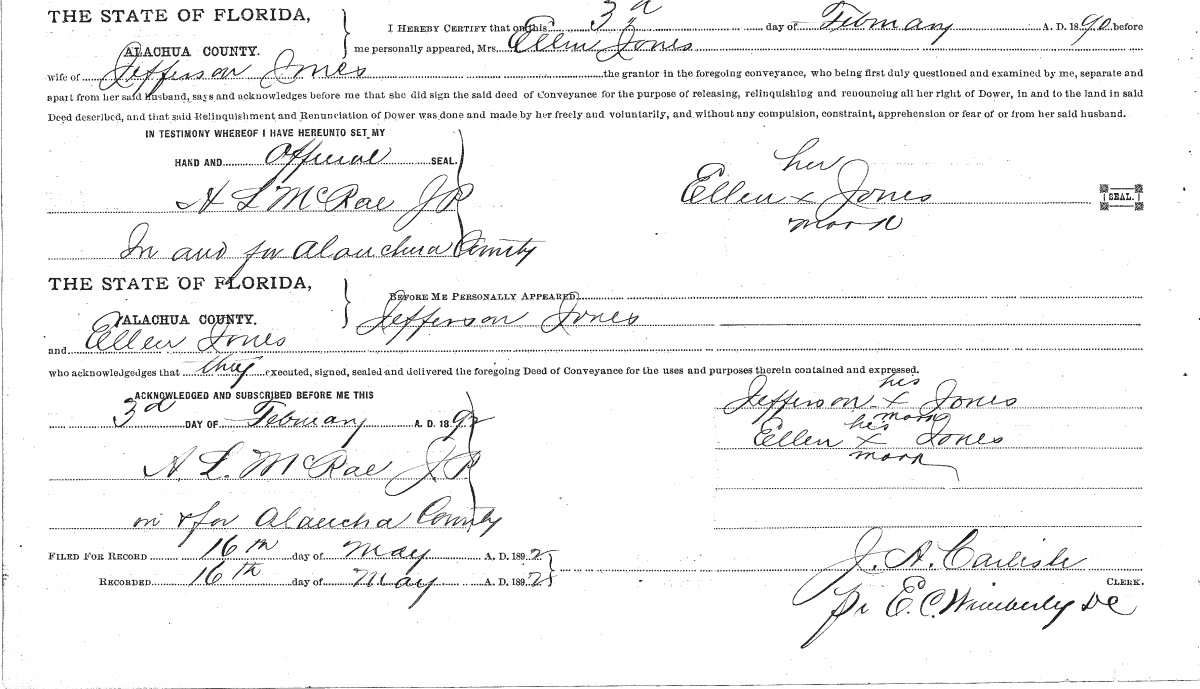 THE STATE OF FLORIDA,
ALACHUA COUNTY.
I HEREBY CERTIFY that on this 3d day of February A. D. 1890 before
me personally appeared, Mrs. Ellen Jones
wife of Jefferson Jones the grantor in the foregoing conveyance, who being first duly questioned and examined by me, separate and
apart from her said husband, says and acknowledges before me that she did sign the said deed of Conveyance for the purpose of releasing, relinquishing and renouncing all her right of Dower, in and to the land in said
Deed described, and that said Relinquishment and Renunciation of Dower was done and made by her freely and voluntarily, and without any compulsion, constraint, apprehension or fear of or from her said husband.
IN TESTIMONY WHEREOF I HAVE HEREUNTO SET MY
HAND AND Official SEAL.
A L McRae JP
In and for Alauchua County
her
Ellen x Jones
mark
SEAL.
THE STATE OF FLORIDA,
ALACHUA COUNTY.
BEFORE ME PERSONALLY APPEARED
Jefferson Jones
and Ellen Jones
who acknowledgedges that they executed, signed, sealed and delivered the foregoing Deed of Conveyance for the uses and purposes therein contained and expressed.
ACKNOWLEDGED AND SUBSCRIBED BEFORE ME THIS
3d DAY OF February A. D. 1892
A. L. McRae JP
in & for Alaucha County
his
Jefferson x Jones
mark
his
Ellen x Jones
mark
FILED FOR RECORD 16th day of May A. D. 1892
RECORDED 16th day of May A. D. 1892
J. A. Carlisle
CLERK.
pr E. C. Wimberly DC